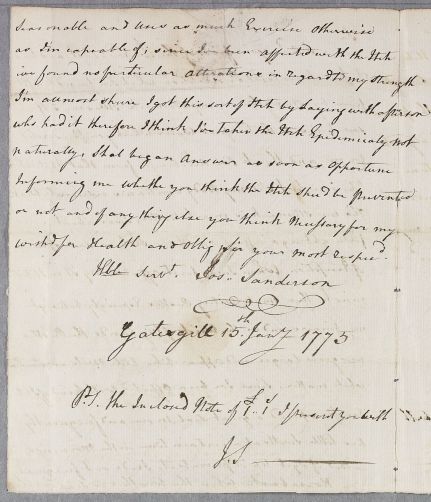 Seasonable and Uses as much Exercise otherwise
as I'm capeable of; since I've been affected with the Itch
ive found no particular alterations in regard to my strength
I'm aumost shure I got this sort of Itch by Laying with a Person
who had it therefore I think I've taken the Itch Epidemicaly not
naturally, Shal beg an Answer as soon as opportune
Informing me whethe you think the Itch shud be prevented
or not and of any thing else you think Nessary for my
wish'd for Health and Oblig, Sir your most respec.
Hble Servt. Jos. Sanderson
Gatesgill 15th. Jany 1775
P.S. the Inclosed Note of £1..1s I present you with
J.S.